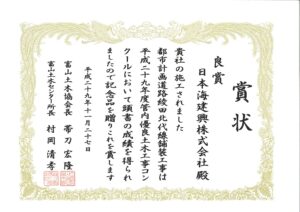 賞状
良賞
日本海建興株式会社 殿
貴社の施工されました
都市計画道路綾田北代線舗装工事は
平成二十九年度管内優良土木工事コン
クールにおいて頭書の成績を得られ
ましたので記念品を贈りこれを賞します
平成二十九年十一月二十七日
富山土木協会長 帯刀宏隆
富山土木センター所長 村岡清孝